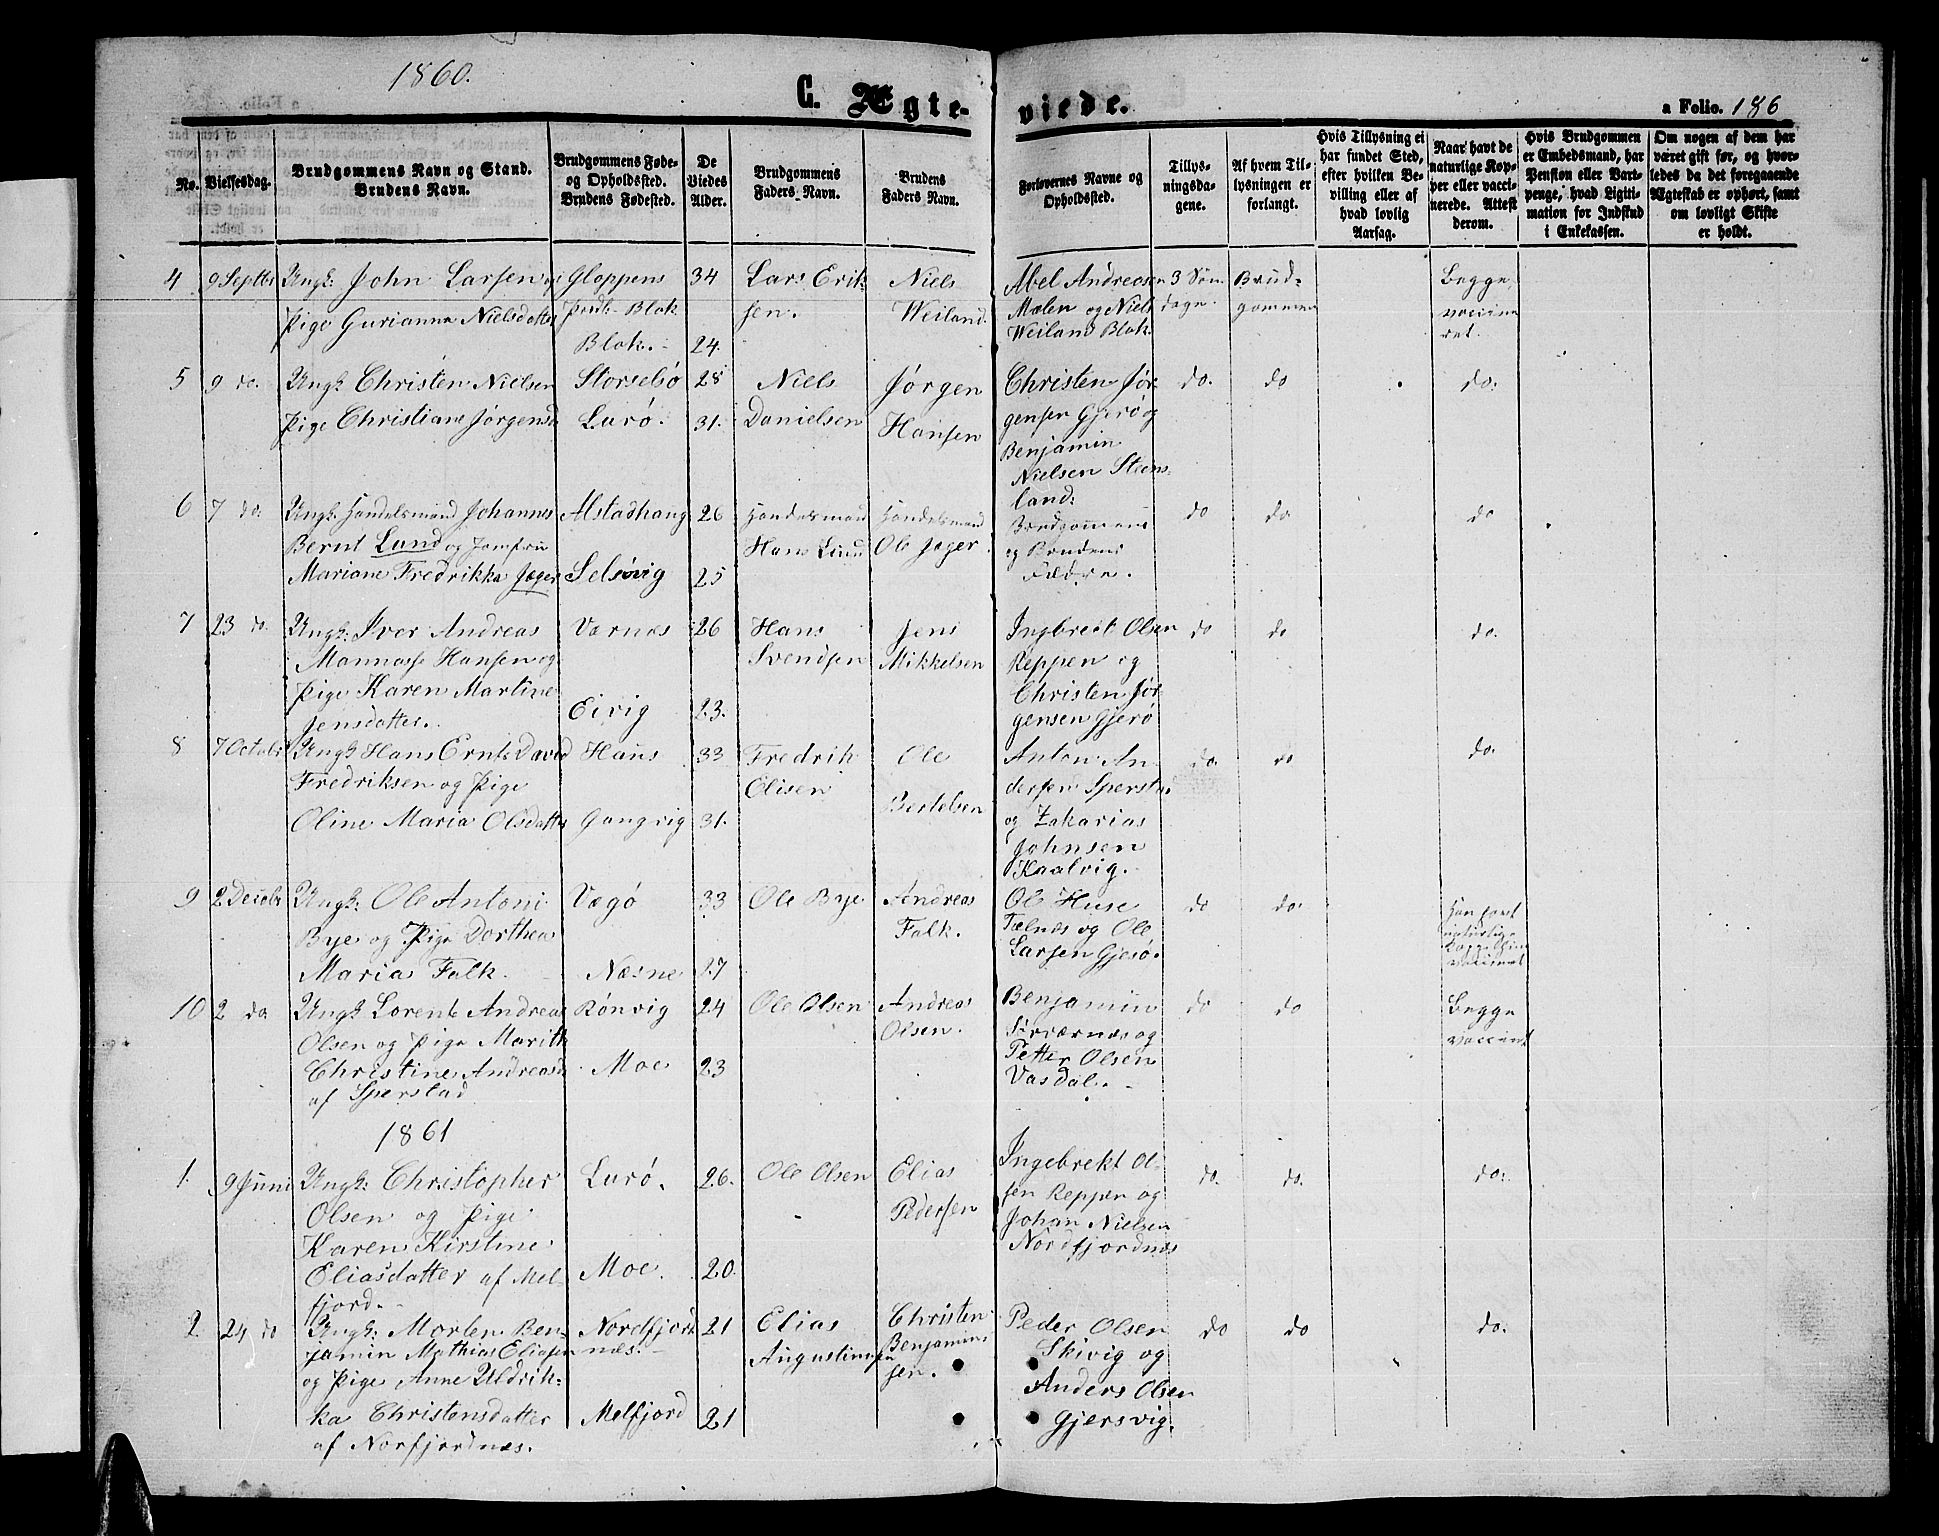 1860.
C. Ægteviede.
a Folio. 186
No.
Vielsesdag.
Brudgommens Navn og Stand.
Brudens Navn.
Brudgommens Føde-
og Opholdsted.
Brudens Fødested.
De
Viedes
Alder.
Brudgommens
Faders Navn.
Brudens
Faders Navn.
Forlovernes Navne og
Opholdssted.
Tillys-
ningsda-
gene.
Af hvem Til-
lysningen er
forlangt.
Hvis Tillysning ei
har fundet Sted,
efter hvilken Be-
villing eller af
hvad lovlig
Aarsag.
Naar havt de
naturlige Kop-
per eller vacci-
nerede. Attest
derom.
Hvis Brudgommen
er Embedsmand, har
Pension eller Vart-
penge, hvad Ligiti-
mation for Indskud
i Enkekassen.
Om nogen af dem har
været gift før, og hvor-
ledes da det foregaaende
Ægteskab er ophørt, samt
om lovligt Skifte
er holdt.
4 9 Septbr Ungk: John Larsen og Gloppens 34 Lars Erik- Niels Abel Andreasen 3 Søn- Brud- Begge
Pige Gurianna Nielsdatter Blok sen. Weiland. Mælen og Niels dage. gommen vaccine
Blok. 24. Weiland Blok. ret.
5 9 do. Ungk Christen Nielsen Storselsø 28 Niels Jørgen Christen Jør- do. do do.
Pige Christiane Jørgensd Lurø. 31. Danielsen Hansen gensen Gjerø og
Benjamin
Nielsen Steens
land.
6 7 do. Ungk. Handelsmand Johannes Alstadhaug 26 Handelsmand Handelsmand Brudgommens do do do
Bernt Lund og Jomfru Hans Lund Ole Jæger. og Brudens
Mariane Fredrikka Jæger Selsøvig 25 Fædre.
7 23 do. Ungk: Iver Andreas Værnes 26 Hans Jens Ingbregt Olsen do do do.
Mannasse Hansen og Svendsen Mikkelsen Reppen og
Pige Karen Martine Eivig 23. Christen Jør
Jensdatter. gensen Gjerø
8 7 Octobr Ungk Hans Ernts David Hans 33 Fredrik Ole Anton An- do. do do.
Fredriksen og Pige Elisen Bertelsen dersen Sperstad
Oline Maria Olsdatter Gangvig 31. og Zakarias
Johnsen
Kaalvig.
9 2 Decbr Ungk: Ole Antoni Vægø 33 Ole Bye Andreas Ole Huse do do. Han havt
Bye og Pige Dorthea Falk. Tælnæs og Ole naturlige
Marias Falk. Næsne 27 Larsen Gjesø. Kopper hun
vaccineret
10 2 do. Ungk Lorents Andreas Rønvig 24 Ole Olsen Andreas Benjamin do do Begge
Olsen og Pige Marith Olsen. Sørværnæs og vaccinet
Christine Andreasd Moe 23 Petter Olsen
af Sperstad Vasdal.
1861
1. 9 Juni Ungk: Christopher Lurø. 26. Ole Olsen Elias Ingebrekt Ol- do. do. do.
Olsen og Pige Pedersen sen Reppen og
Karen Kirstine Johan Nielsen
Eliasdatter af Mel- Moe. 20. Nordfjordnæs
fjord.
2 24 do Ungk: Morten Ben- Nordfjord 21 Elias Christen Peder Olsen do do do.
jamin Mathias Eliasen næs. Augustinusen Benjamins Skivig og
og Pige Anne Uldrik- sen. Anders Olsen
ka Christensdatter Melfjord 21 Gjersvig.
af Norfjordnæs.